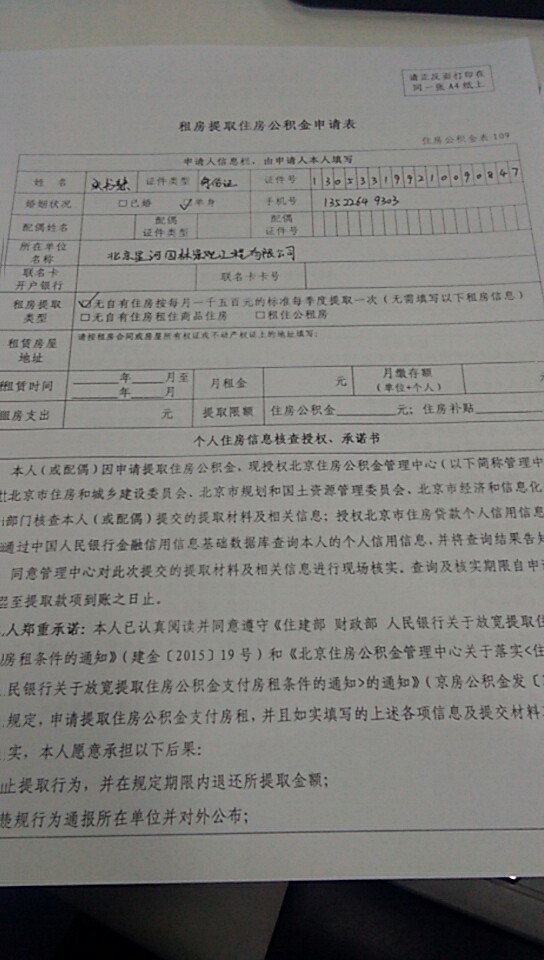 请正反面打印在
同一张A4纸上
租房提取住房公积金申请表
住房公积金表109
申请人信息栏，由申请人本人填写
姓 名 证件类型 身份证 证件号 130533199210090847
婚姻状况 □已婚 ☑单身 手机号 13522649303
配偶姓名 配偶证件类型 配偶证件号
所在单位名称 北京星河园林景观工程有限公司
联名卡开户银行 联名卡卡号
租房提取类型 ☑无自有住房按每月一千五百元的标准每季度提取一次（无需填写以下租房信息）
□无自有住房租住商品住房 □租住公租房
租赁房屋地址 请按租房合同或房屋所有权证或不动产权证上的地址填写：
租赁时间 ____年____月至____年____月 月租金 元 月缴存额（单位+个人） 元
房支出 元 提取限额 住房公积金____元；住房补贴____
个人住房信息核查授权、承诺书
本人（或配偶）因申请提取住房公积金，现授权北京住房公积金管理中心（以下简称管理中
北京市住房和城乡建设委员会、北京市规划和国土资源管理委员会、北京市经济和信息化
部门核查本人（或配偶）提交的提取材料及相关信息；授权北京市住房贷款个人信用信息
通过中国人民银行金融信用信息基础数据库查询本人的个人信用信息，并将查询结果告知
同意管理中心对此次提交的提取材料及相关信息进行现场核实。查询及核实期限自申
至提取款项到账之日止。
人郑重承诺：本人已认真阅读并同意遵守《住建部 财政部 人民银行关于放宽提取住
房租条件的通知》（建金〔2015〕19号）和《北京住房公积金管理中心关于落实<住
民银行关于放宽提取住房公积金支付房租条件的通知>的通知》（京房公积金发〔
规定，申请提取住房公积金支付房租，并且如实填写的上述各项信息及提交材料
实，本人愿意承担以下后果：
止提取行为，并在规定期限内退还所提取金额；
违规行为通报所在单位并对外公布；